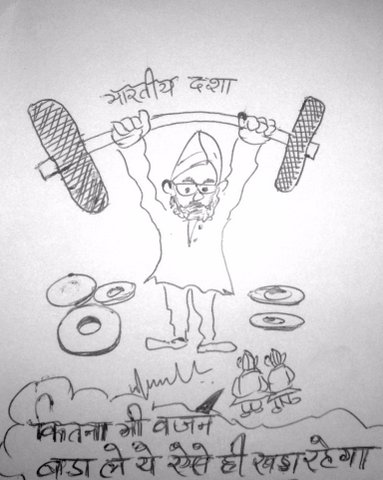 भारतीय दशा
कितना भी वजन
बाडा ले ये ऐसे ही खडा रहेगा